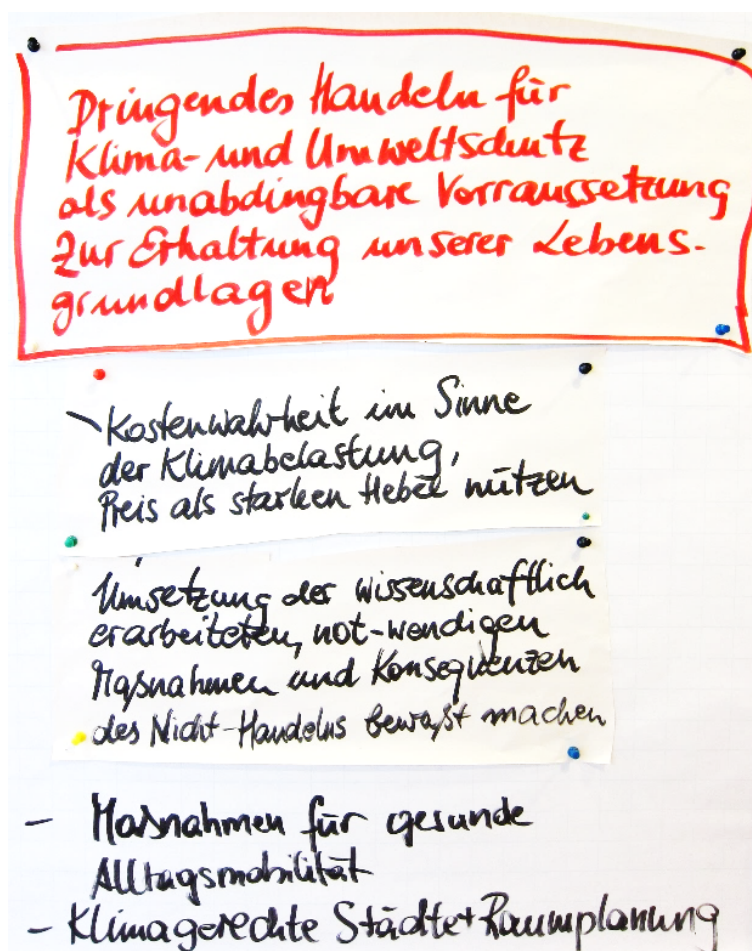 Dringendes Handeln für
Klima- und Umweltschutz
als unabdingbare Vorraussetzung
Zur Erhaltung unserer Lebens-
grundlagen
- Kostenwahrheit im Sinne
der Klimabelastung,
Preis als starken Hebel nützen
Umsetzung der wissenschaftlich
erarbeiteten, not-wendigen
Maßnahmen und Konsequenzen
des Nicht-Handelns bewußt machen
- Maßnahmen für gesunde
Alltagsmobilität
- Klimagerechte Städte+Raumplanung